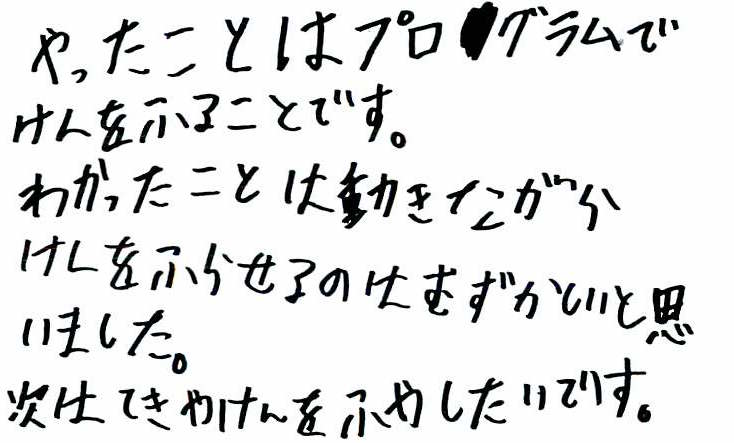 やったことはプログラムで
けんをふることです。
わかったことは動きながら
けんをふらせるのはむずかしいと思
いました。
次はてきやけんをふやしたいです。